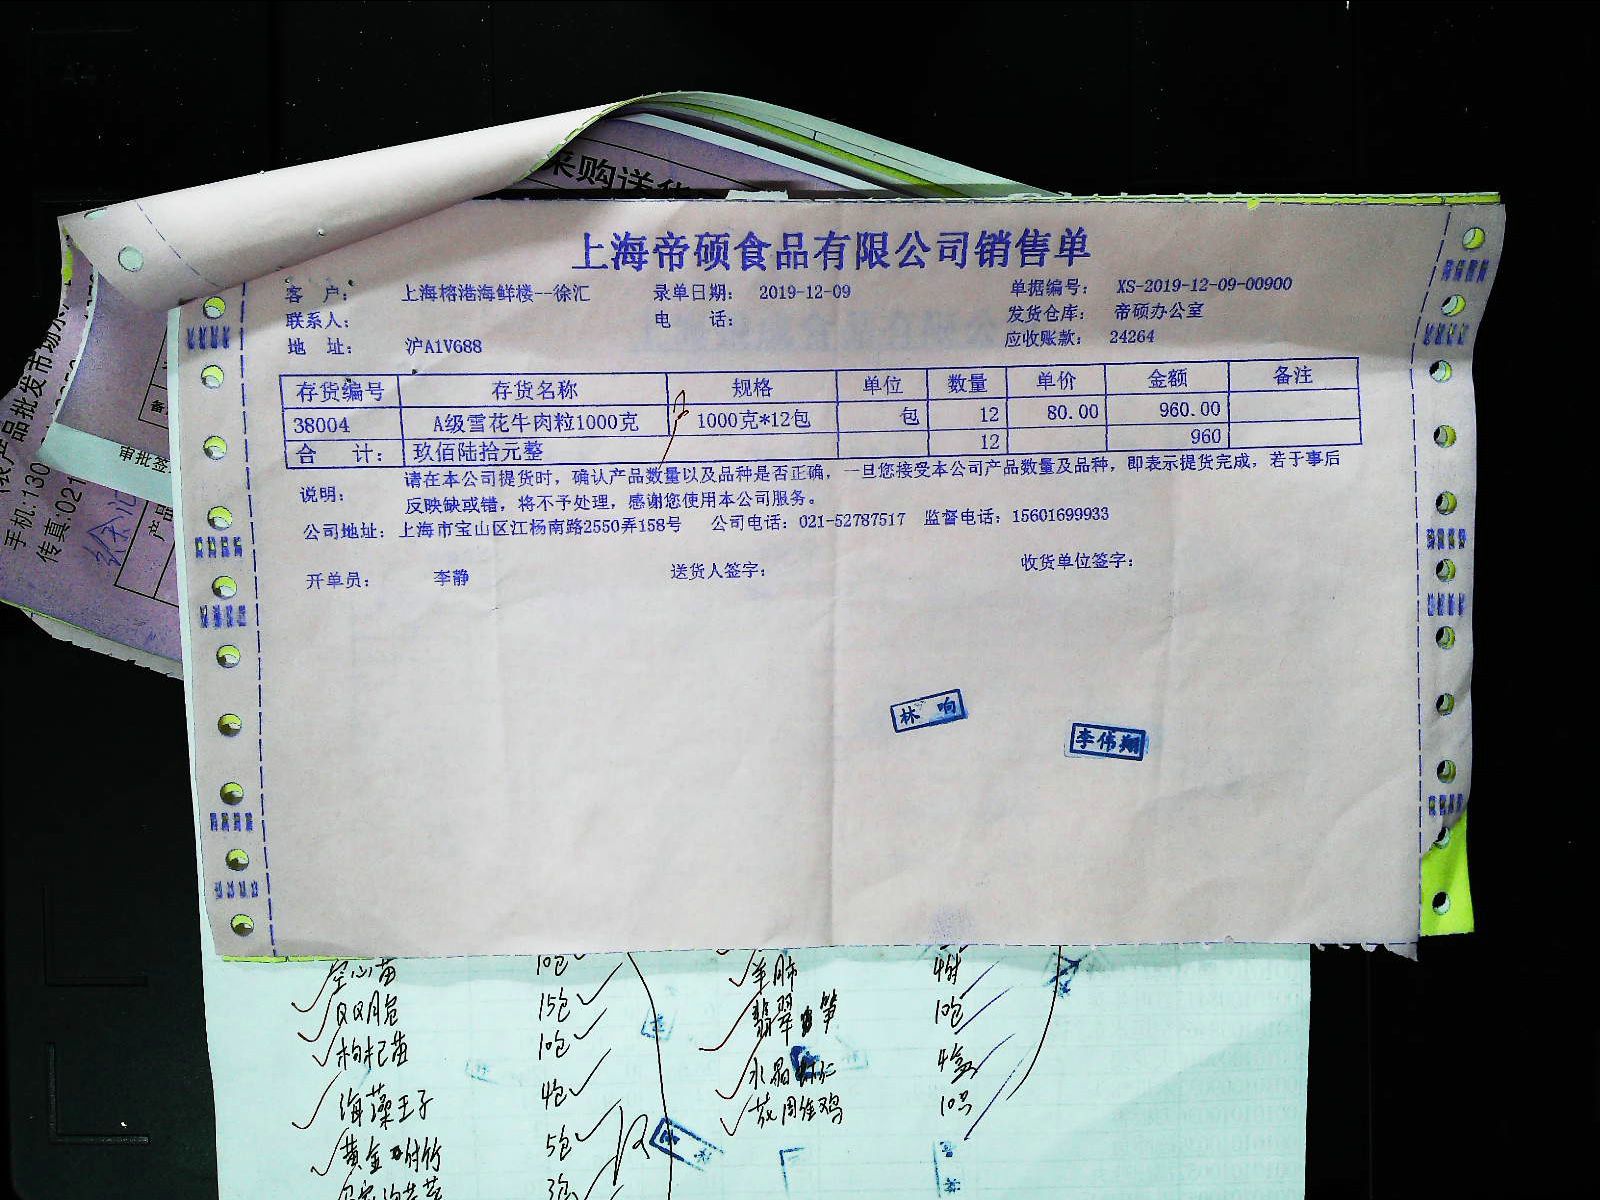 采购送货
上海帝硕食品有限公司销售单
客 户: 上海榕港海鲜楼--徐汇 录单日期: 2019-12-09 单据编号: XS-2019-12-09-00900
联系人: 电 话: 发货仓库: 帝硕办公室
地 址: 沪A1V688 应收账款: 24264
存货编号 存货名称 规格 单位 数量 单价 金额 备注
38004 A级雪花牛肉粒1000克 1000克*12包 包 12 80.00 960.00
合 计: 玖佰陆拾元整 12 960
说明: 请在本公司提货时，确认产品数量以及品种是否正确，一旦您接受本公司产品数量及品种，即表示提货完成，若于事后
反映缺或错，将不予处理，感谢您使用本公司服务。
公司地址: 上海市宝山区江杨南路2550弄158号 公司电话: 021-52787517 监督电话: 15601699933
开单员: 李静 送货人签字: 收货单位签字:
林响
李伟翔
农产品批发市场水
手机:130
传真:021
审批签
产品
空心苗 10包 羊肺
15包 翡翠笋 10包
枸杞苗 10包 水晶虾仁 4盒
海藻王子 4包 花雕醉鸡 10只
黄金竹 5包
3包